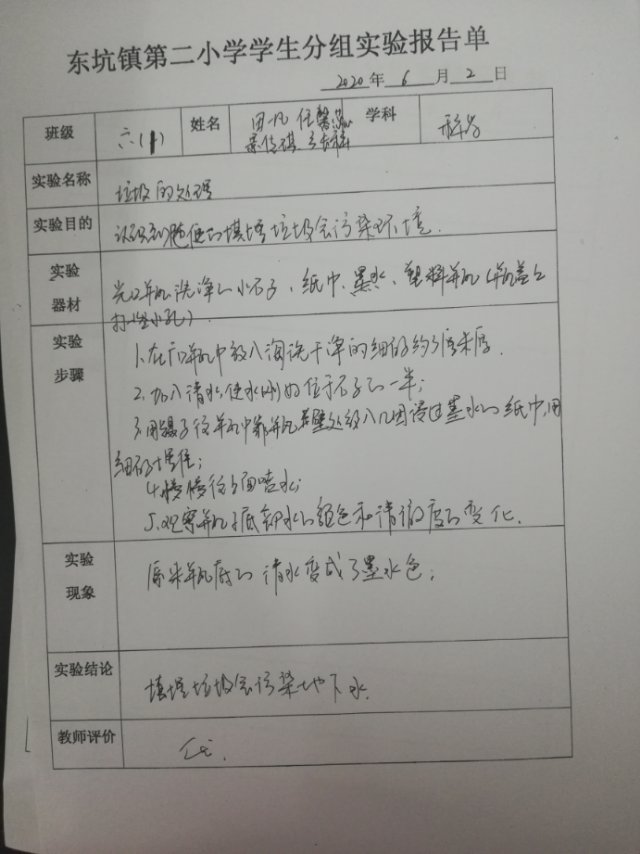 东坑镇第二小学学生分组实验报告单
2020年 6 月 2 日
班级 六(1) 姓名 田凡 任馨 学科 科学
实验名称 垃圾的处理
实验目的 认识到随便的填埋垃圾会污染环境.
实验器材 广口瓶、洗净的小石子、纸巾、墨水、塑料瓶(瓶盖上
打些小孔)
实验步骤 1.在广口瓶中放入淘洗干净的细砂约5厘米厚.
2.加入清水,使水刚好位于石子的一半;
3.用镊子往瓶中靠瓶壁处放入几团浸过墨水的纸巾,用
细砂埋住;
4.慢慢往上面喷水;
5.观察瓶子底部水的颜色和清澈度的变化.
实验现象 原来瓶底的清水变成了墨水色;
实验结论 填埋垃圾会污染地下水.
教师评价 优.